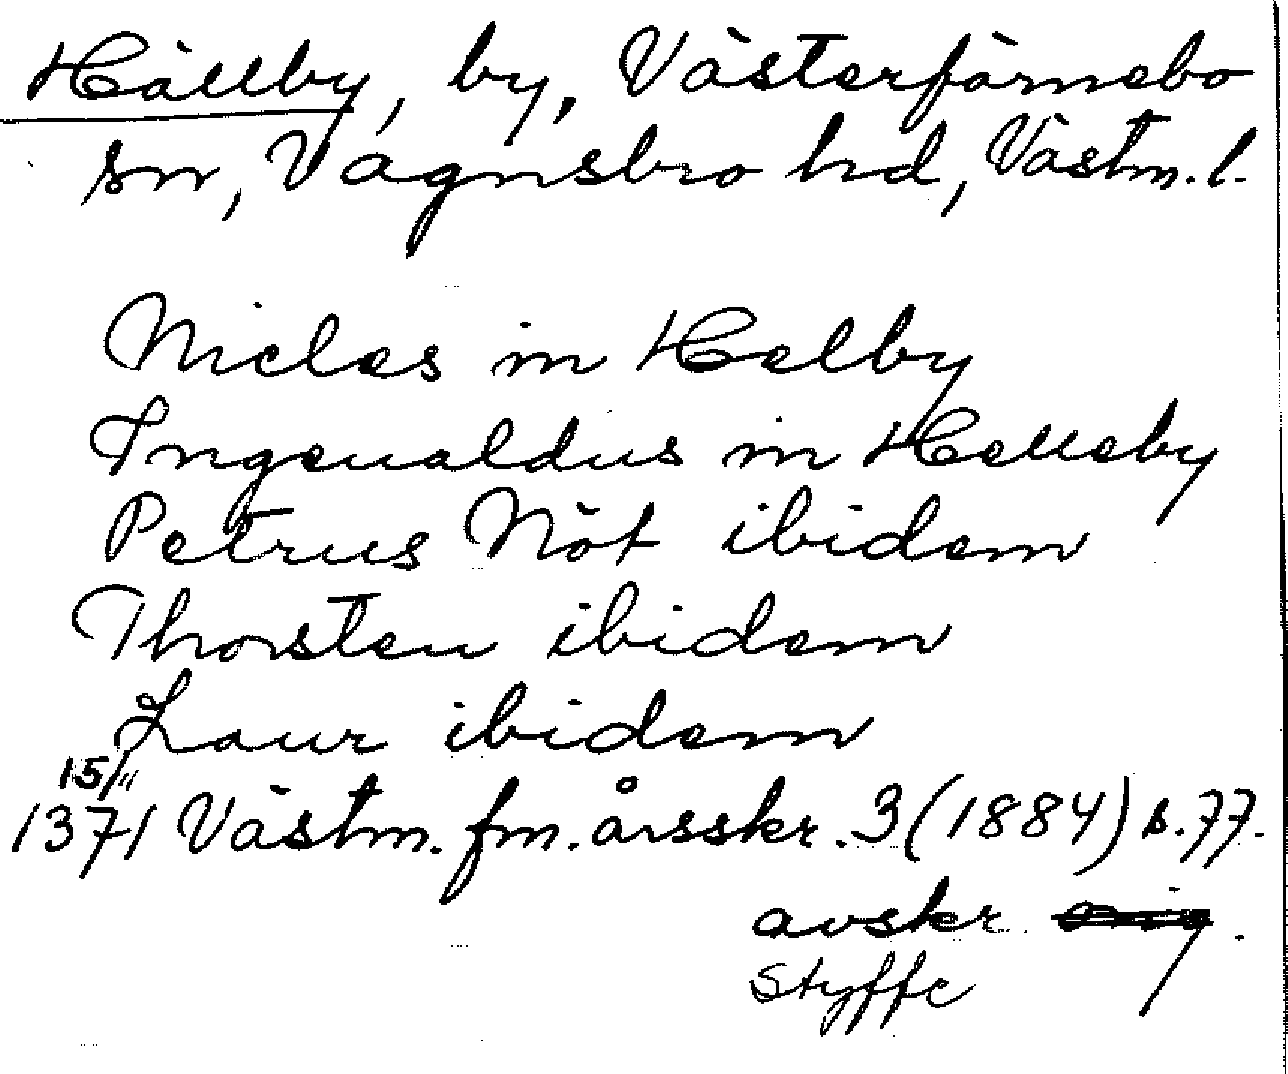 Hällby, by, Västerfärnebo
sn, Vagnsbro hd, Västm. l.
Niclas in Helby
Ingeualdus in Helleby
Petrus Nöt ibidem
Thorsten ibidem
Laur ibidem
15/11
1371 Västm. fm. årsskr. 3 (1884) s. 77.
avskr. orig.
Styffe